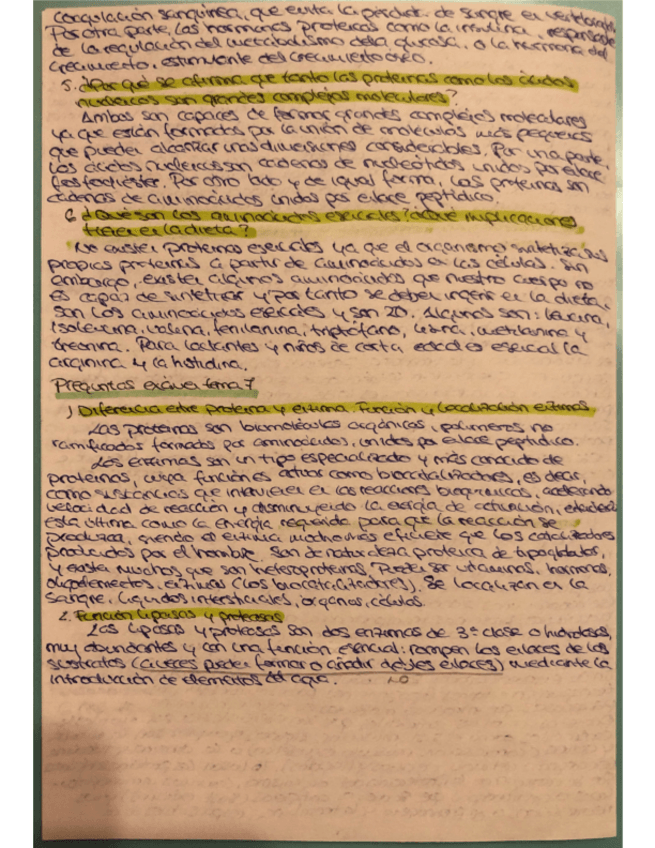 coagulación sanguínea, que evita la pérdida de sangre en vertebrados.
Por otra parte, las hormonas proteicas como la insulina, responsable
de la regulación del metabolismo de la glucosa, o la hormona del
crecimiento, estimulante del crecimiento óseo.
5. ¿Por qué se afirma que tanto las proteínas como los ácidos
nucleicos son grandes complejos moleculares?
Ambos son capaces de formar grandes complejos moleculares
ya que están formados por la unión de moléculas más pequeñas
que pueden alcanzar unas dimensiones considerables. Por una parte,
los ácidos nucleicos son cadenas de nucleótidos unidos por enlace
fosfodiéster. Por otro lado y de igual forma, las proteínas son
cadenas de aminoácidos unidos por enlace peptídico.
6. ¿Qué son los aminoácidos esenciales? ¿Qué implicaciones
tienen en la dieta?
No existen proteínas esenciales ya que el organismo sintetiza sus
propias proteínas a partir de aminoácidos en las células. Sin
embargo, existen algunos aminoácidos que nuestro cuerpo no
es capaz de sintetizar y por tanto se deben ingerir en la dieta.
Son los aminoácidos esenciales y son 20. Algunos son: leucina,
isoleucina, valina, fenilanina, triptófano, lisina, metilanina y
treonina. Para lactantes y niños de corta edad es esencial la
arginina y la histidina.
Preguntas examen tema 7
1) Diferencia entre proteína y enzima. Función y localización enzimas
Las proteínas son biomoléculas orgánicas, polímeros no
ramificados formados por aminoácidos, unidos por enlace peptídico.
Los enzimas son un tipo especializado y más conocido de
proteínas, cuya función es actuar como biocatalizadores, es decir,
como sustancias que intervienen en las reacciones bioquímicas, acelerando
velocidad de reacción y disminuyendo la energía de activación,
esta última como la energía requerida para que la reacción se
produzca, siendo el enzima mucho más eficiente que los catalizadores
producidos por el hombre. Son de naturaleza proteica de tipo globular,
y existen muchos que son heteroproteínas. Pueden ser vitaminas, hormonas,
oligoelementos, enzimas (los biocatalizadores). Se localizan en la
sangre, líquidos intersticiales, órganos, células.
2. Función lipasas y proteasas
Las lipasas y proteasas son dos enzimas de 3ª clase o hidrolasas,
muy abundantes y con una función esencial: rompen los enlaces de los
sustratos (a veces pueden formar o añadir dobles enlaces) mediante la
introducción de elementos del agua. NO